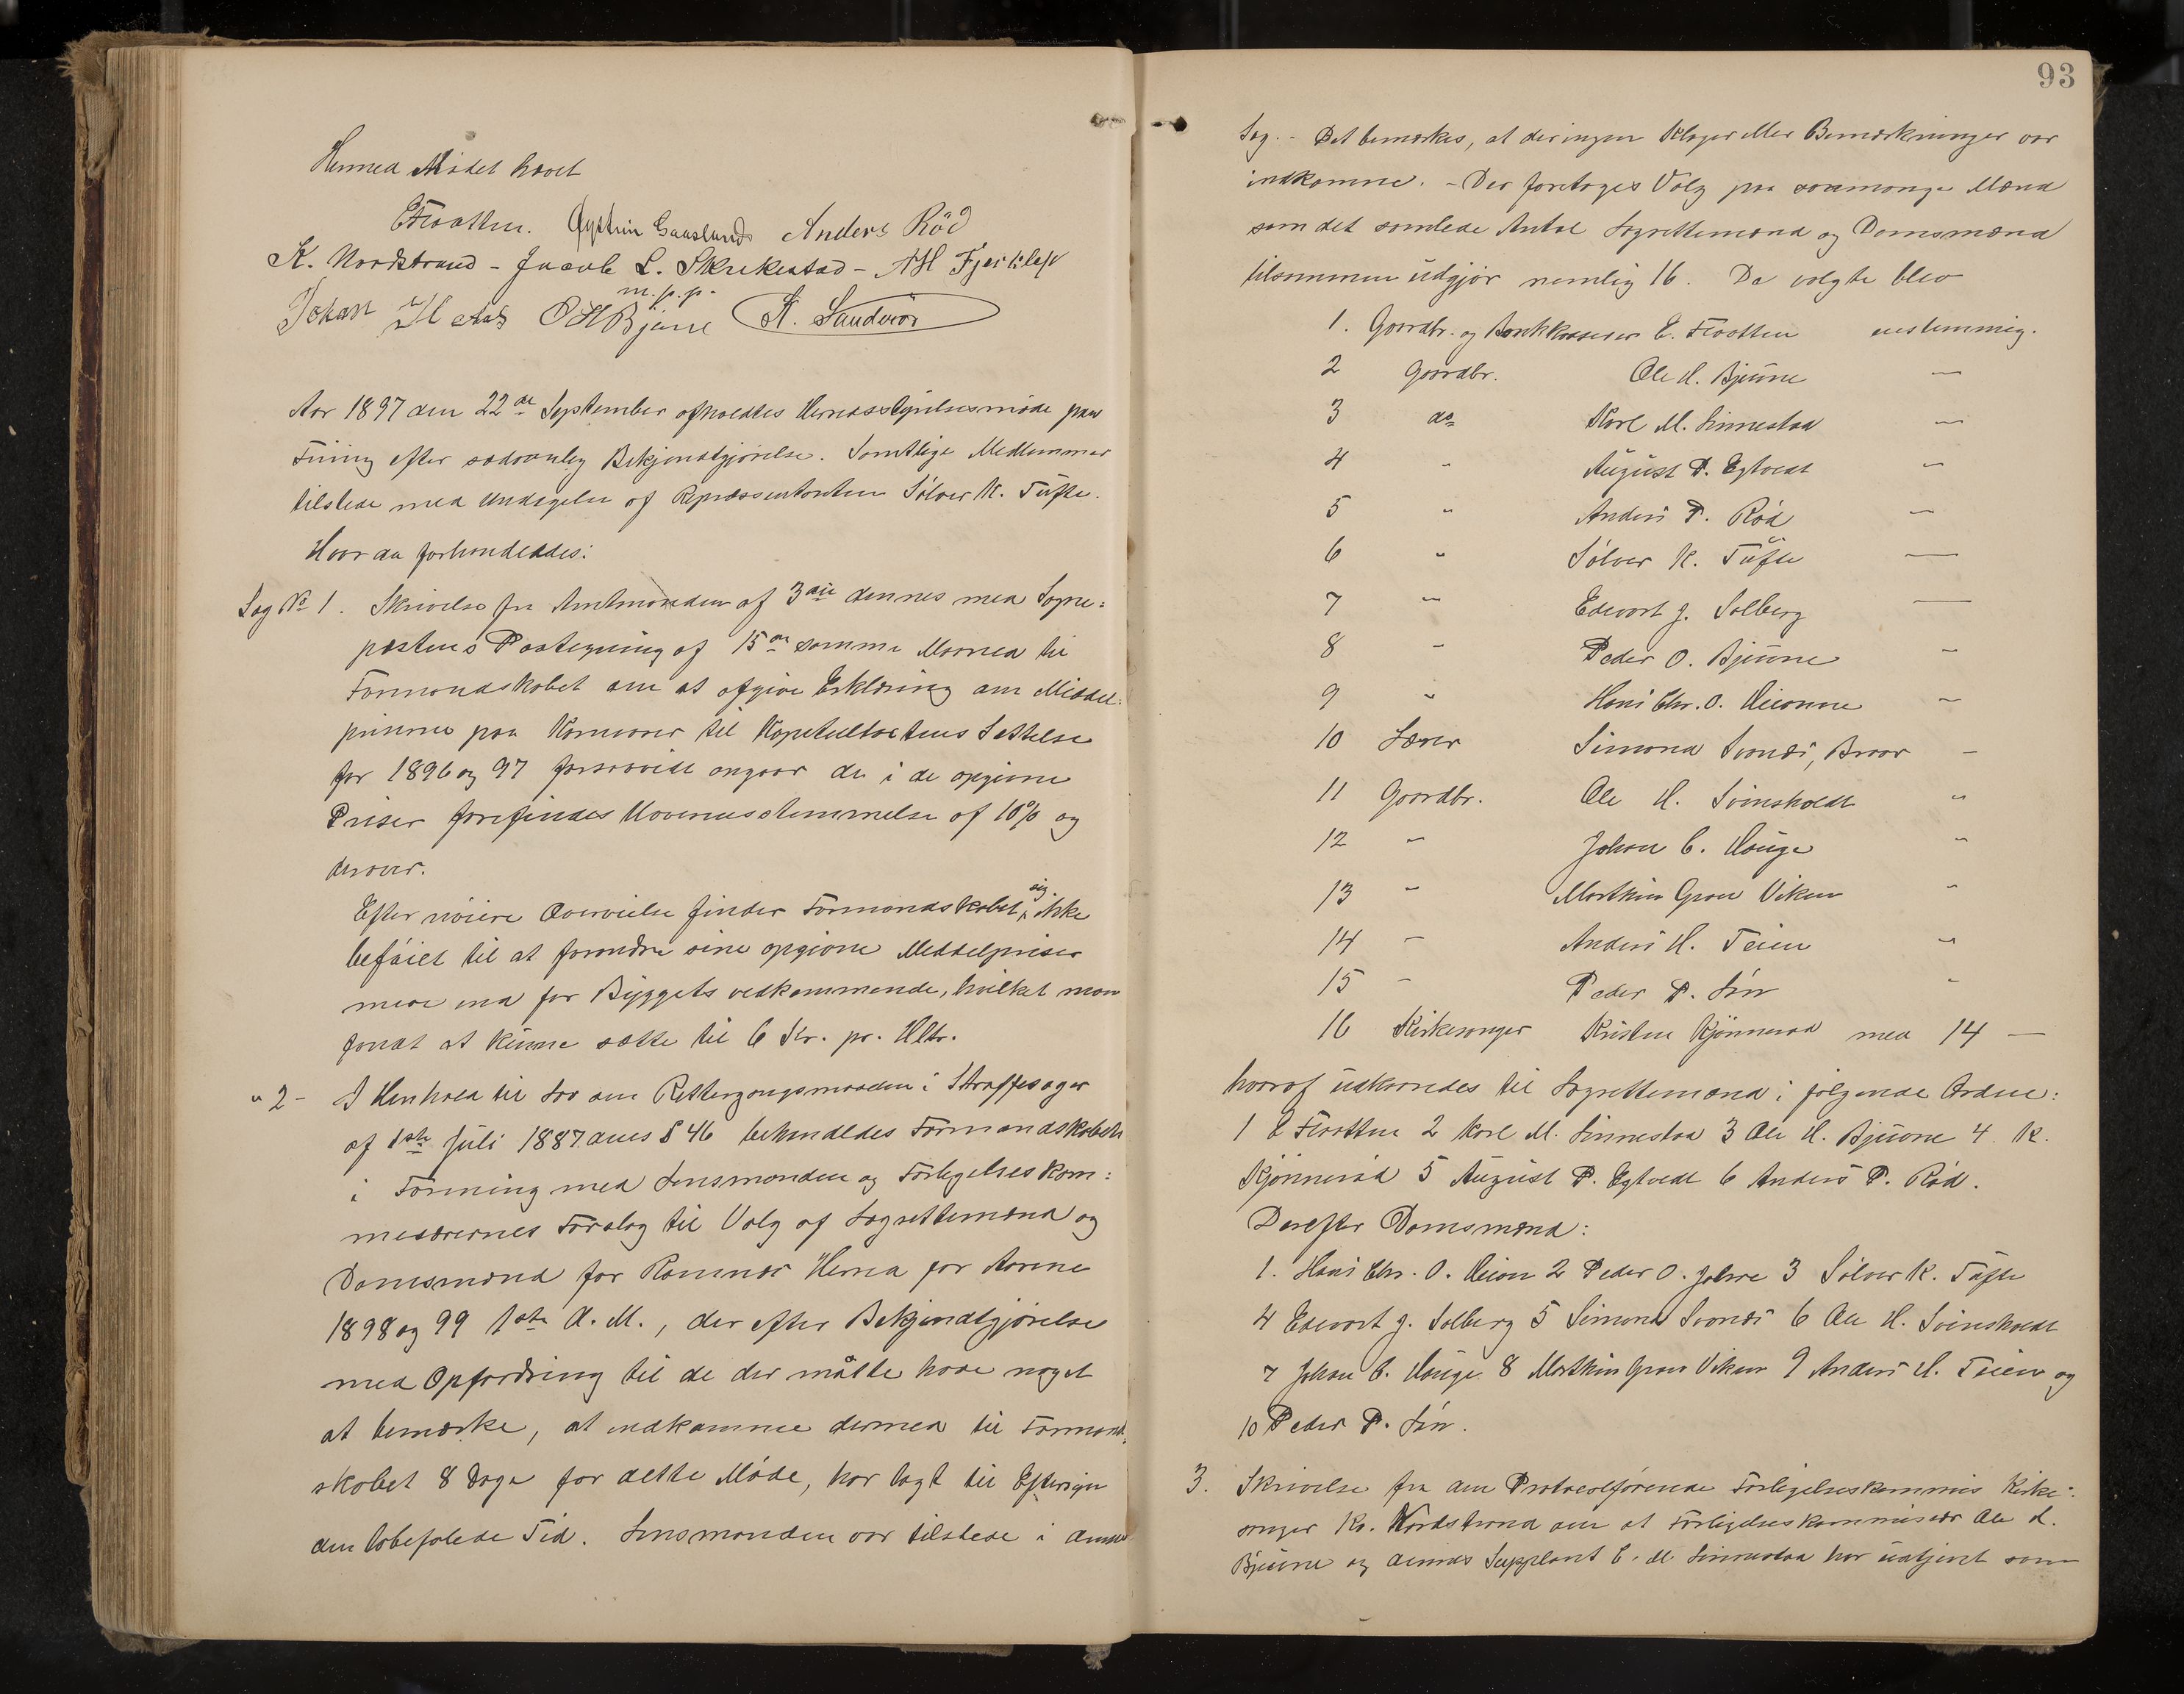 Hermed Mødet hævet
EFlaatten. Øystein Gaaslund Anders Röd
K. Nordstrand - Jacob L. Skrikestad - AH Fjærklep
m.p.p.
Johan OHBjune K. Sandvör
Aar 1897 den 22de September afholdtes Herredsstyrelsesmøde paa
Fiining efter sædvanlig Bekjendtgjørelse. Samtlige Medlemmer
tilstede med Undtagelse af Repræsentanten Sølver K. Tufte.
Hvor da forhandledes:
Sag No 1. Skrivelse fra Amtmanden af 3die dennes med Sogne=
præstens Paategning af 15de samme Maaned til
Formandskabet om at afgive Erklæring om Middel=
priserne paa Kornvarer til Kapitelstakstens Sættelse
for 1896 og 97 forsaavidt angaar de i de opgivne
Priser forefindes Uoverensstemmelse af 10% og
derover.
Efter nøiere Overveielse finder Formandskabet sig ikke
beføiet til at forandre sine opgivne Middelpriser
mere end for Byggets vedkommende, hvilket man
fandt at kunne sætte til 6 Kr. pr. Hltr.
" 2 - I Henhold til Lov om Rettergangsmaaden i Straffesager
af 1ste Juli 1887 dens § 46 behandledes Formandskabets
i Forening med Lensmanden og Forligelseskom=
misærernes Forslag til Valg af Lagrettemænd og
Domsmænd for Ramnæs Herred for Aarene
1898 og 99 1ste A. M., der efter Bekjendtgjørelse
med Opfordring til de der måtte have noget
at bemærke, at indkomme dermed til Formand=
skabet 8 Dage før dette Møde, har lagt til Eftersyn
den lovbefalede Tid. Lensmanden var tilstede i denne
93
Sag. - Det bemærkes, at der ingen Klager eller Bemærkninger var
indkomne. - Der foretoges Valg paa saamange Mænd
som det samlede Antal Lagrettemænd og Domsmænd
tilsammen udgjør nemlig 16. De valgte blev
1. Gaardbr. og Bankkasserer E. Flaatten enstemmig.
2 Gaardbr. Ole H. Bjuune —
3 do Karl M. Linnestad —
4 " August P. Egtvedt —
5 " Anders P. Rød —
6 " Sølver K. Tufte —
7 " Edevart J. Solberg —
8 " Peder O. Bjuune —
9 " Hans Chr. O. Meionne —
10 Lærer Simond Svonds, Braar —
11 Gaardbr. Ole H. Svinsholdt "
12 " Johan C. Hauge "
13 " Marthin Gran Viken "
14 - Anders H. Teien "
15 - Peder P. Lin "
16 Kirkesanger Kristen Kjønnerød med 14 —
hvoraf udkaaredes til Lagrettemænd i følgende Orden:
1 E Flaatten 2 Karl M. Linnestad 3 Ole H. Bjuune 4. K.
Kjønnerød 5 August P. Egtvedt 6 Anders P. Rød.
Derefter Domsmænd:
1. Hans Chr. O. 2 Peder O. 3 Sølver K. Tufte
4 Edevart J. Solberg 5 Simond Svonds 6 Ole H. Svinsholdt
7 Johan C. Hauge 8 Marthin Gran Viken 9 Anders H. Teien og
10 Peder P. Lin.
3. Skrivelse fra den Protocolførende Forligelseskommis Kirke=
sanger Kr. Nordstrand om at Forligelseskommissær Ole H.
Bjuune og dennes Supplant E. M Linnestad har udtjent som